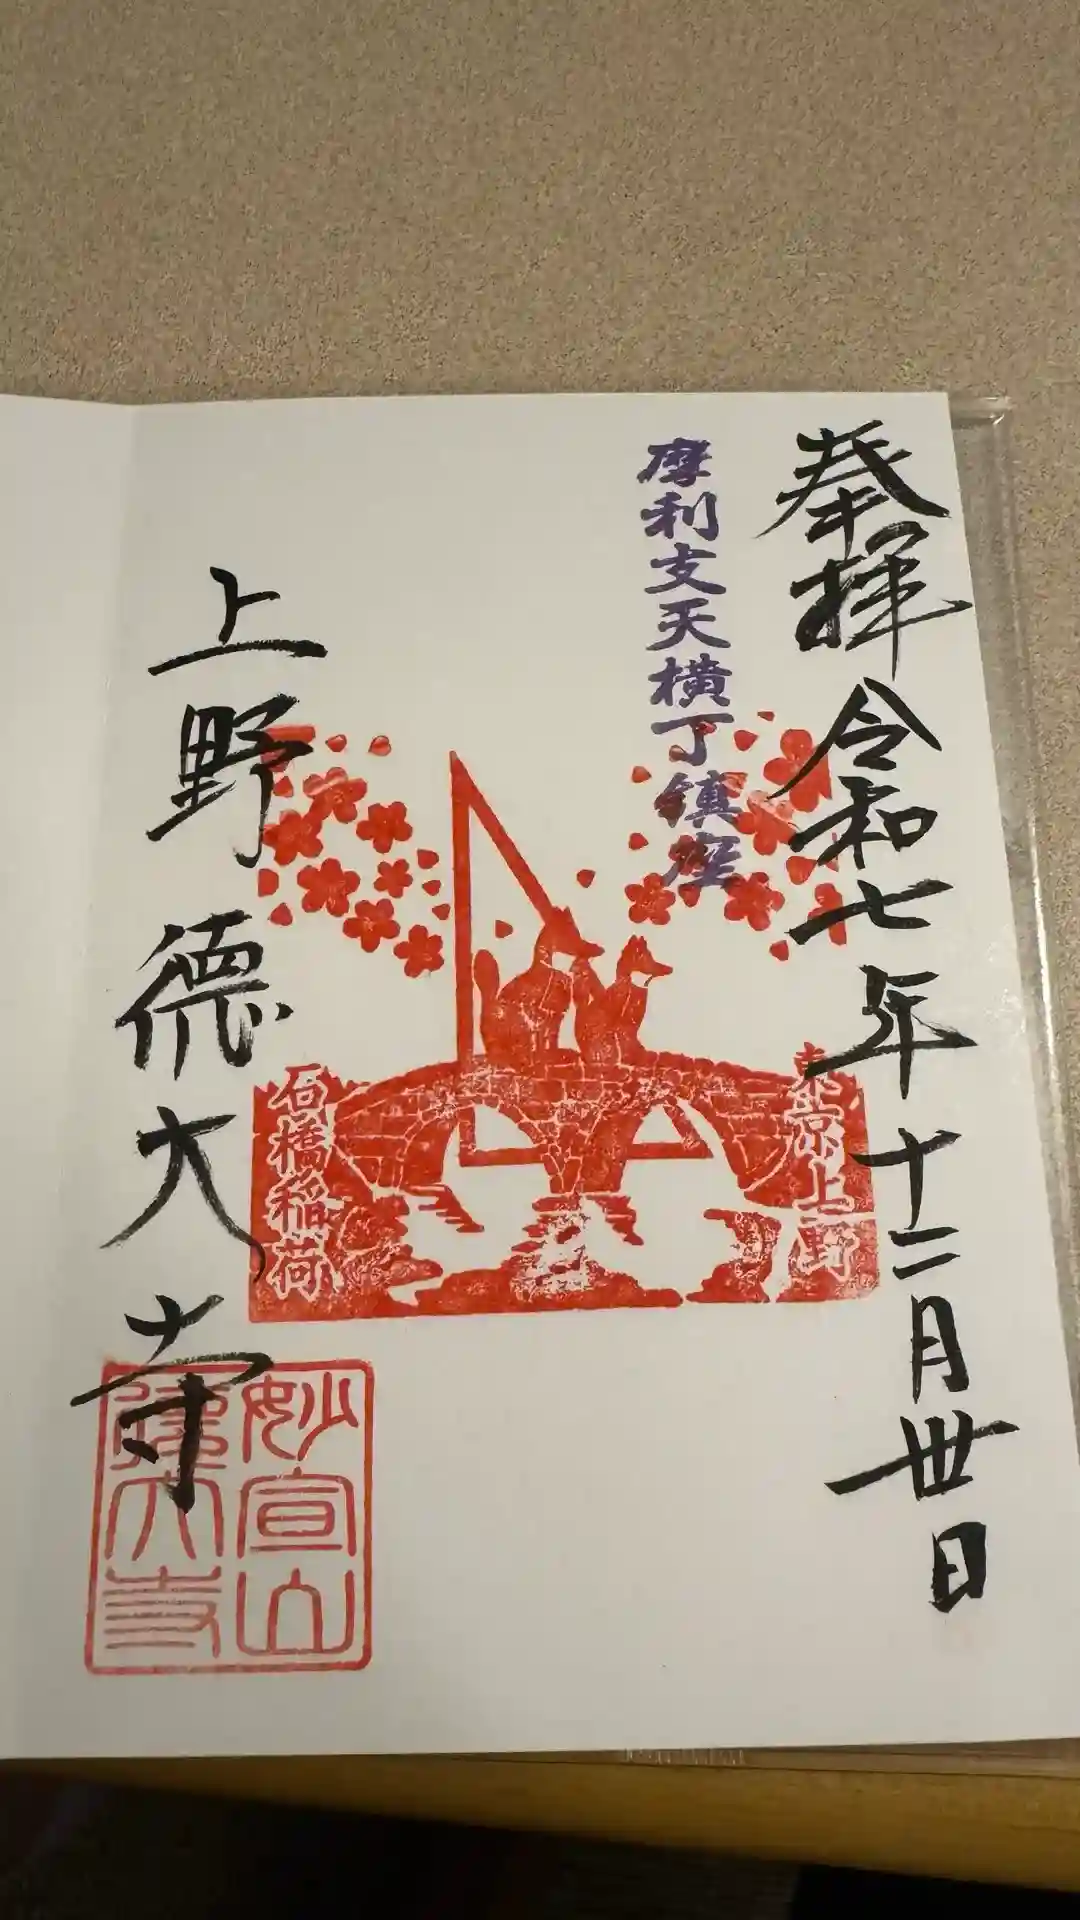 奉拝 令和七年十二月丗日
摩利支天横丁鎮座
東京上野
石橋稲荷
上野 德大寺
妙宣山
德大寺